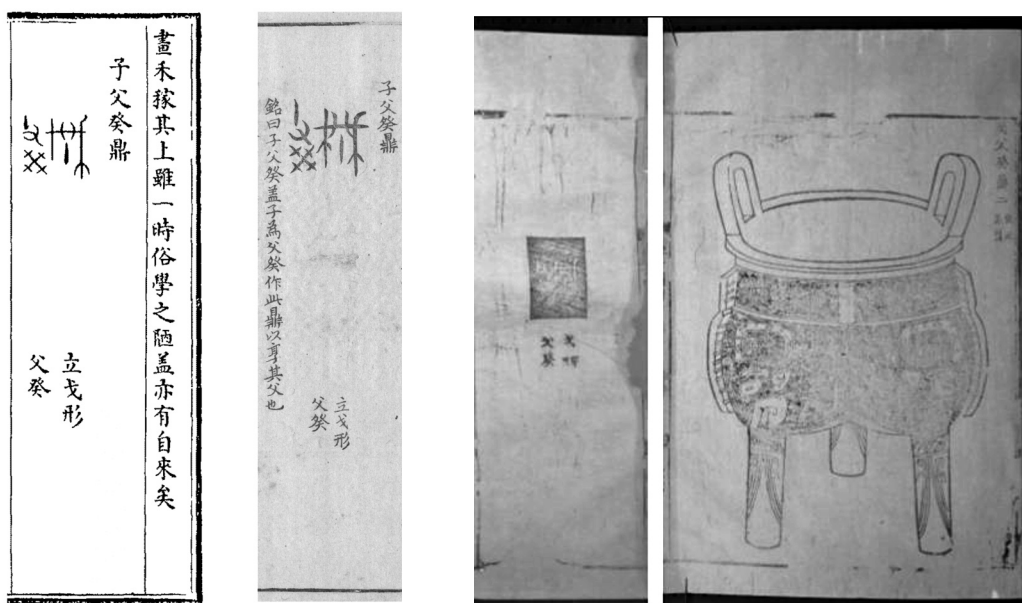 畫禾稼其上雖一時俗學之陋盖亦有自來矣
子父癸鼎
立戈形
父癸
子父癸鼎
立戈形
父癸
銘曰子父癸盖子為父癸作此鼎以享其父也
父癸
父癸鼎二